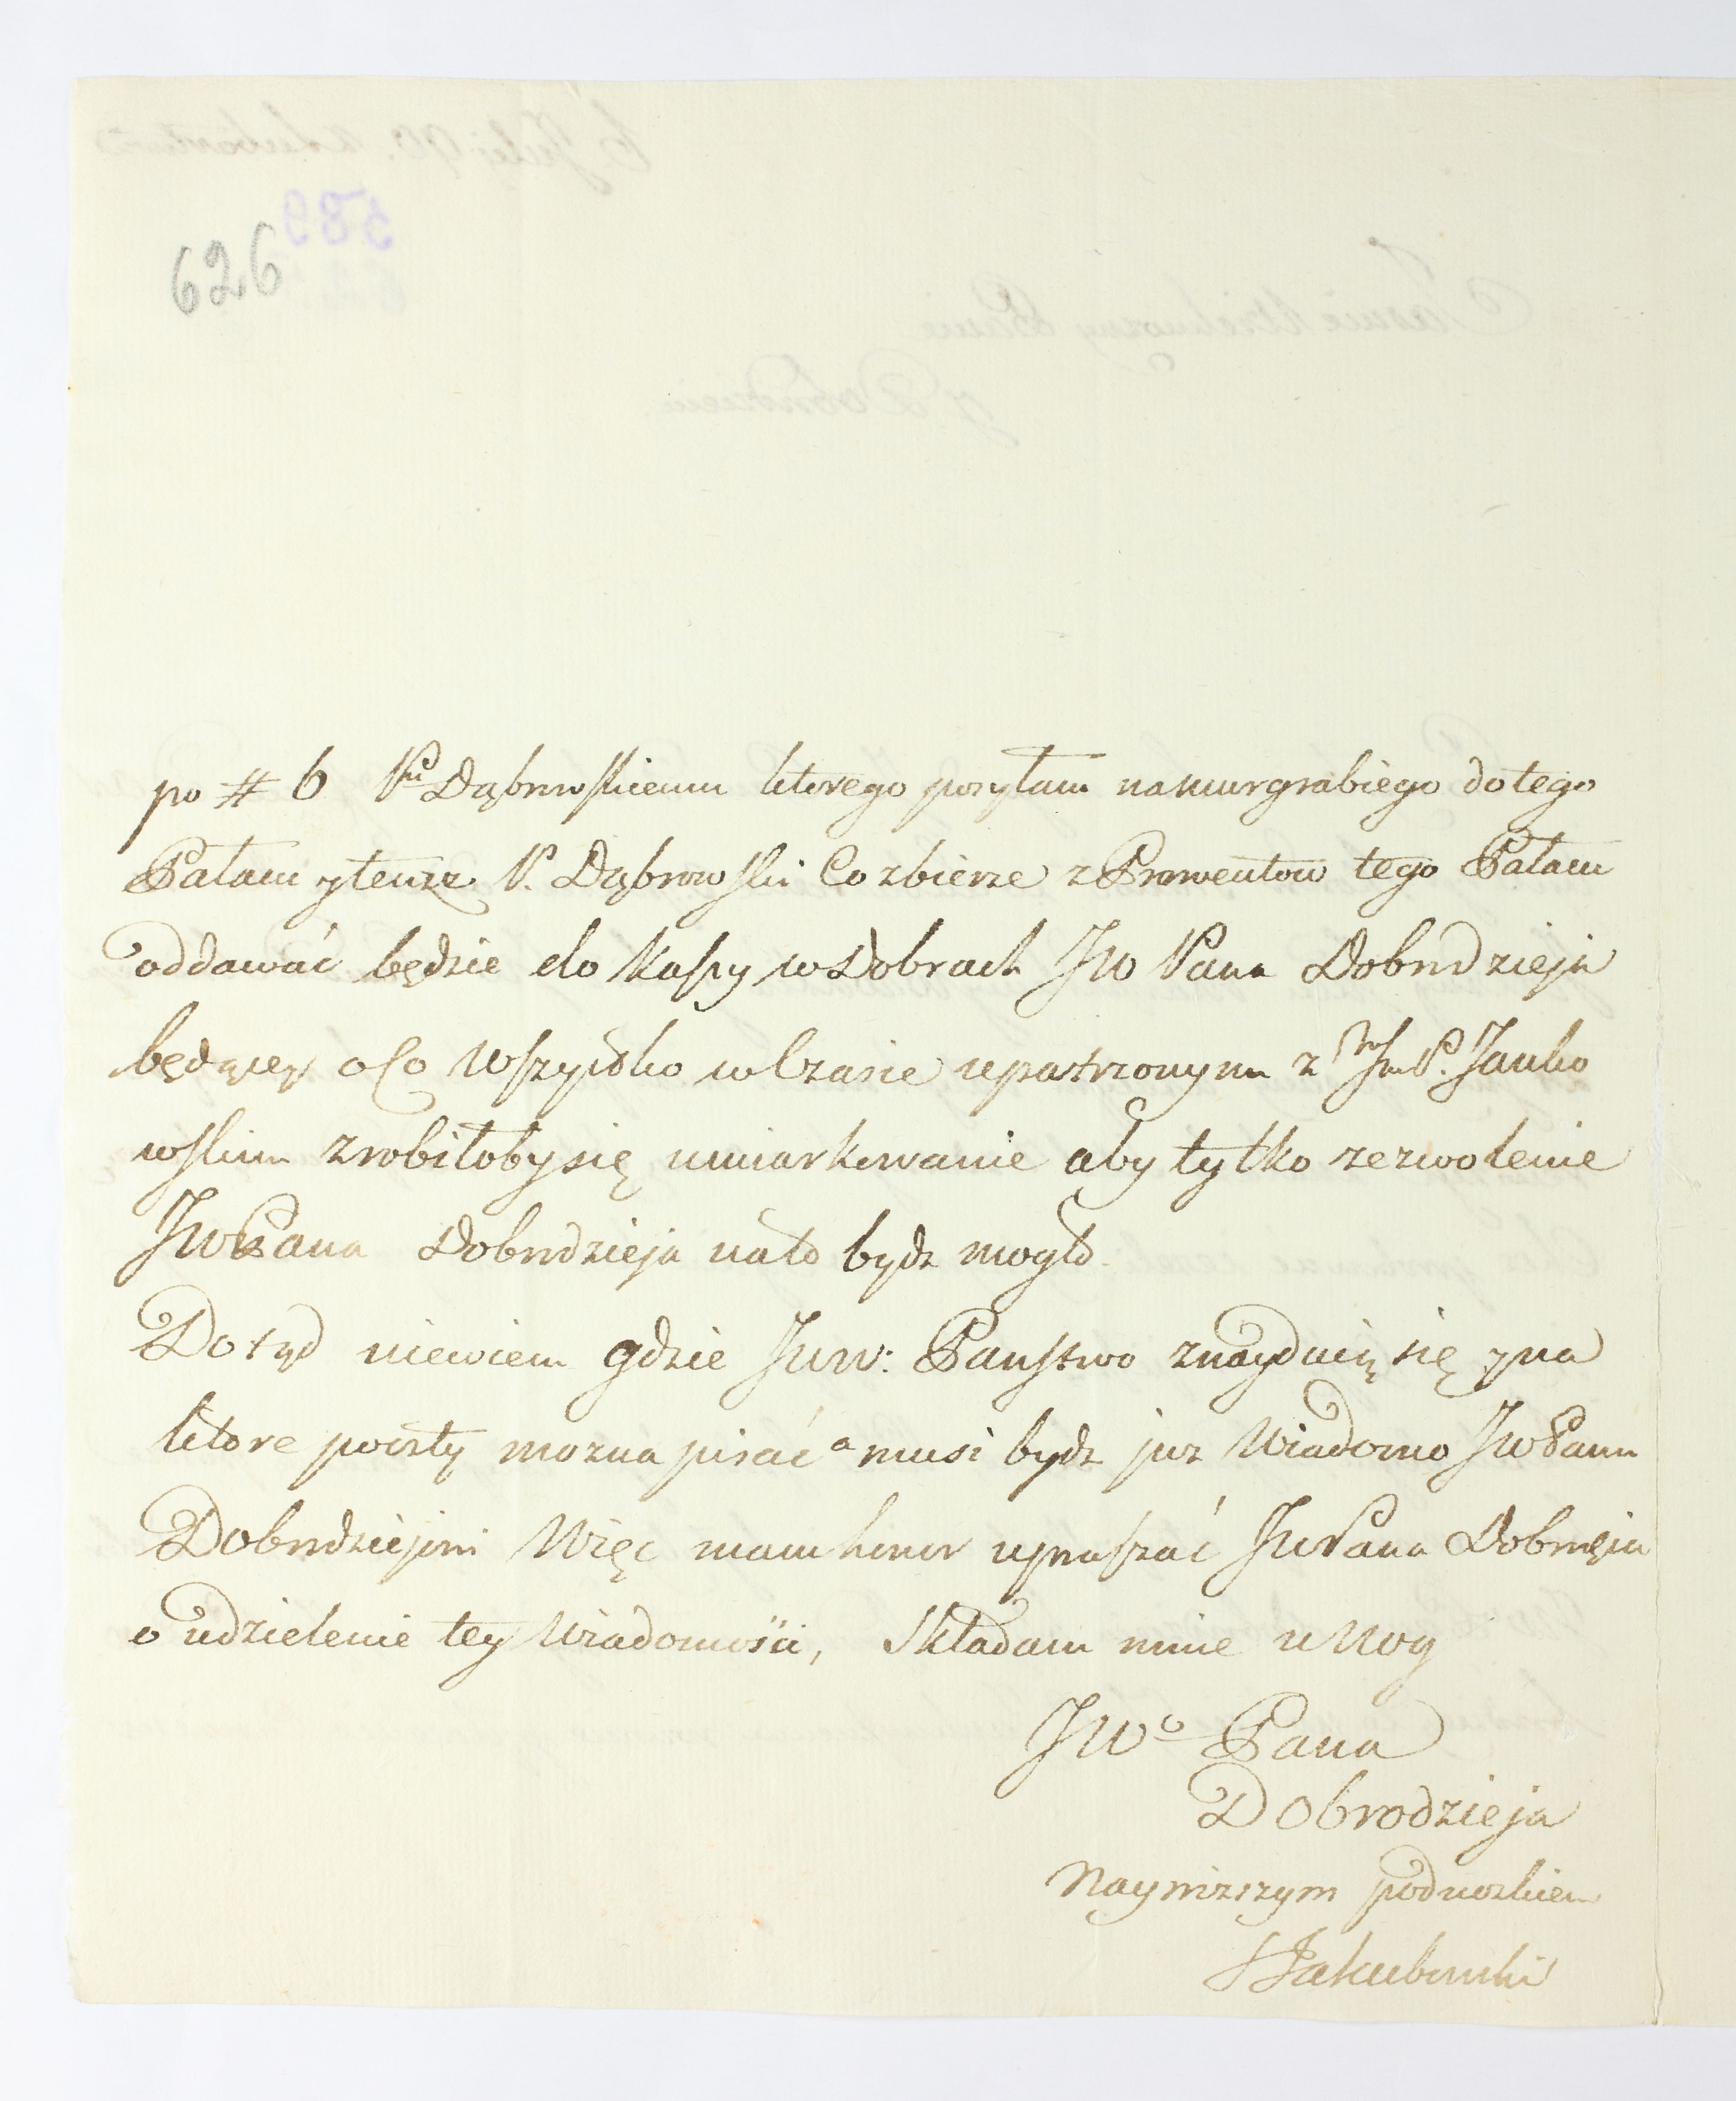 626
po # 6 Pu Dąbrowskiemu ktorego posyłam na murgrabiego do tego
Pałacu y tenze P. Dąbrowski Co zbierze z Prowentow tego Pałacu
oddawać będzie do Kassy w Dobrach JW Pana Dobrdzieja
będącey o Co wszystko w Czasie upatrzonym z JmP. Janko
wskim zrobiłoby się umiarkowanie aby tylko zezwolenie
JWPana Dobrdzieja na to bydz mogło.
Dotąd niewiem gdzie Jww: Panstwo znayduią się y na
ktore pocztę mozna pisać a musi bydz juz Wiadomo JWPanu
Dobrdziejowi Więc mam honor upraszać JWPana Dobrdzieja
o udzielenie tey Wiadomości, Składam mnie u Nog
JWo Pana
Dobrodzieja
Nayniższym podnozkiem
Jakubowski